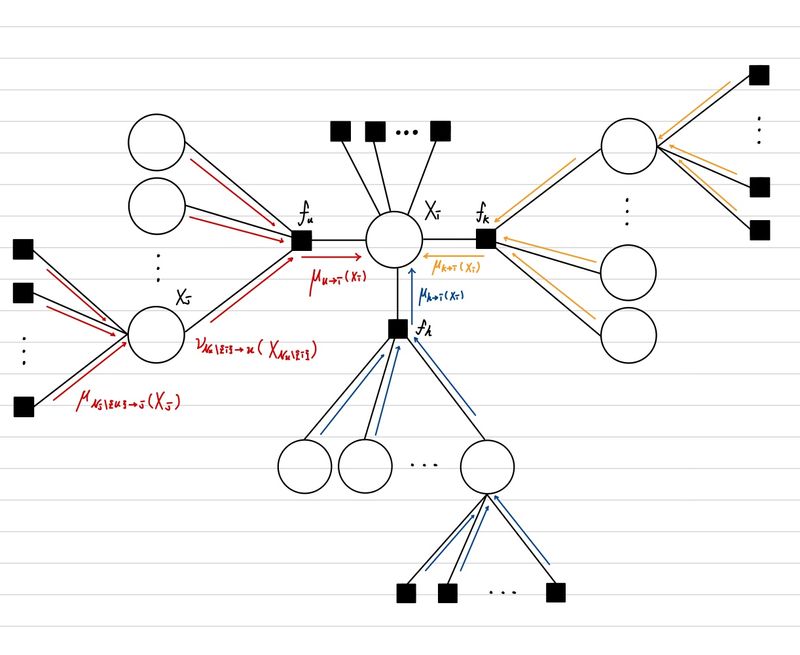 f_u
X_i
f_k
μ_{u→i}(X_i)
μ_{k→i}(X_i)
X_j
μ_{h→i}(X_i)
f_h
ν_{N_u\{i}→u}(X_{N_u\{i}})
μ_{N_j\{u}→j}(X_j)